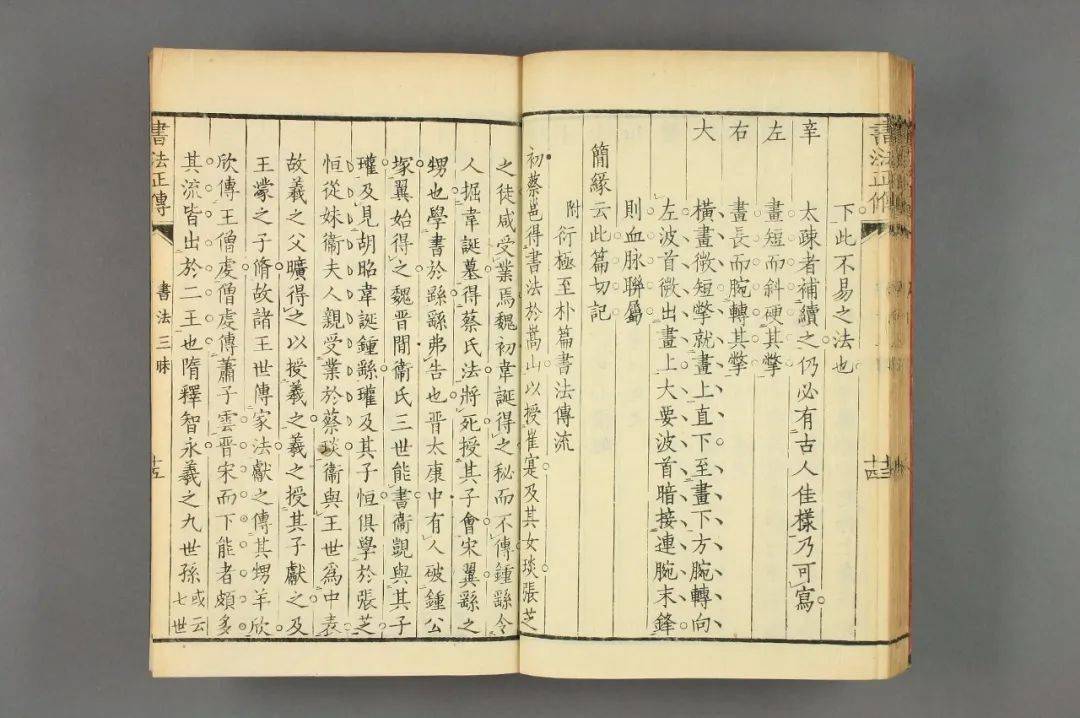 書法正傳
十四
下此不易之法也
辛　太疎者補續之仍必有古人佳樣乃可寫
左　畫短而斜硬其撆
右　畫長而腕轉其撆
大　橫畫微短撆就畫上直下至畫下方腕轉向
左波首微出畫上大要波首暗接連腕末鋒
則血脉聯屬
簡緣云此篇切記
附衍極至朴篇書法傳流
初蔡邕得書法於嵩山以授崔寔及其女琰張芝
之徒咸受業焉魏初韋誕得之秘而不傳鍾繇令
人掘韋誕墓得蔡氏法將死授其子會宋翼繇之
甥也學書於繇繇弗告也晋太康中有人破鍾公
塚翼始得之魏晋間衞氏三世能書衞覬與其子
瓘及見胡昭韋誕鍾繇瓘及其子恒俱學於張芝
恒從妹衞夫人親受業於蔡琰衞與王世爲中表
故羲之父曠得之以授羲之羲之授其子獻之及
王濛之子脩故諸王世傳家法獻之傳其甥羊欣
欣傳王僧虔僧虔傳蕭子雲晋宋而下能者頗多
其流皆出於二王也隋釋智永羲之九世孫或云七世
書法正傳
書法三昧
十五